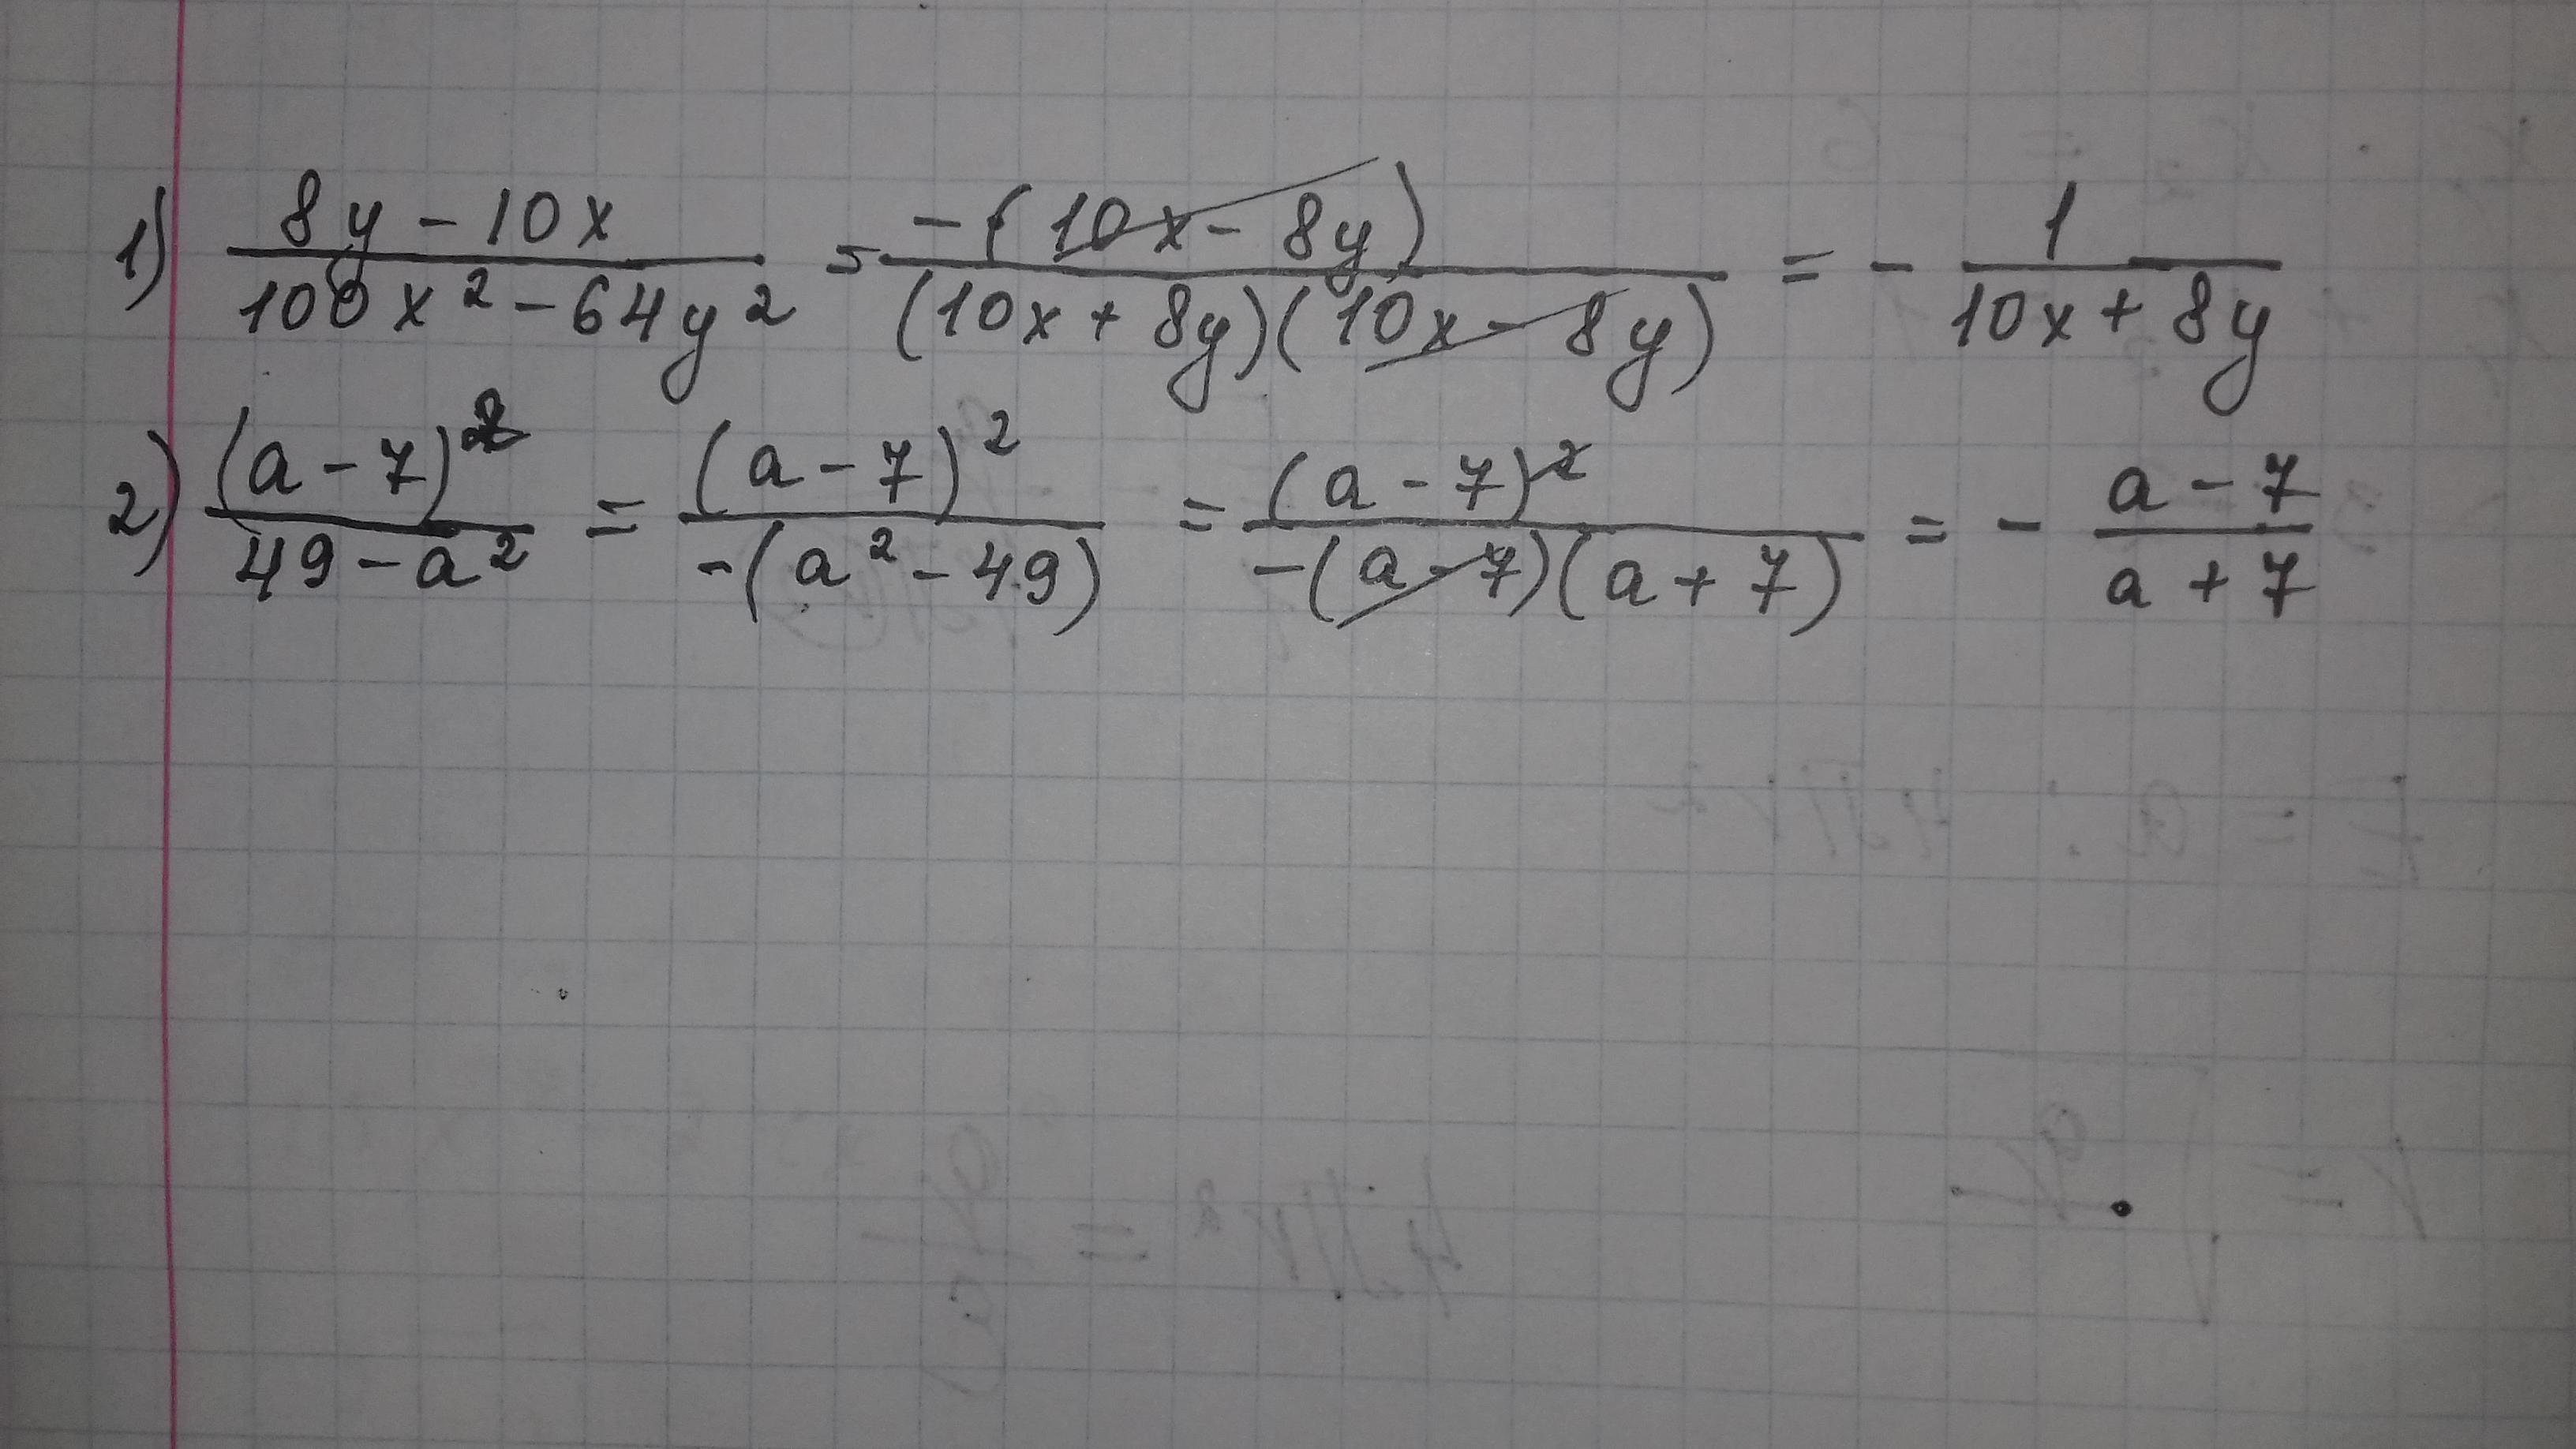 1) (8y - 10x)/(100x² - 64y²) = (-(10x - 8y))/((10x + 8y)(10x - 8y)) = - 1/(10x + 8y)
2) (a - 7)²/(49 - a²) = (a - 7)²/(-(a² - 49)) = (a - 7)²/(-(a - 7)(a + 7)) = - (a - 7)/(a + 7)